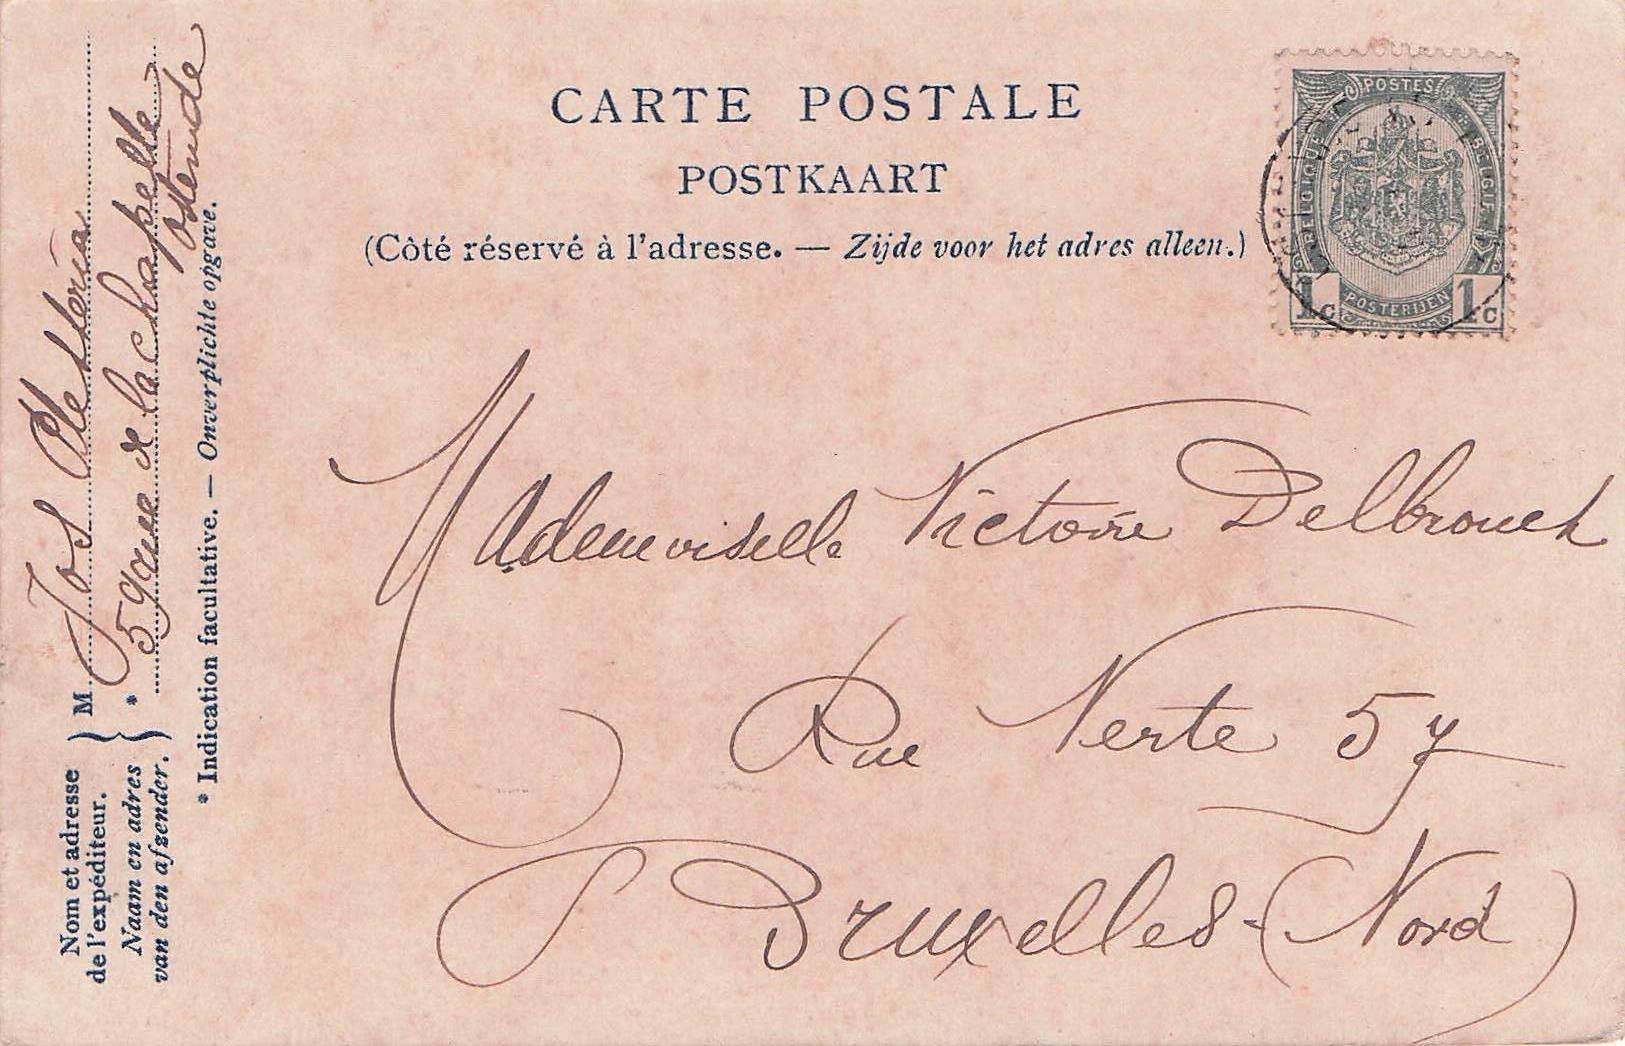 CARTE POSTALE
POSTKAART
(Côté réservé à l'adresse. — Zijde voor het adres alleen.)
POSTES
BELGIQUE
BELGIQUE
POSTERIJEN
1c 1c
Mademoiselle Victoire Delbrouck
Rue Verte 57
Bruxelles-(Nord)
Nom et adresse
de l'expéditeur.
Naam en adres
van den afzender.
M Jos
* 5 de la chapelle
Ostende
* Indication facultative. — Onverplichte opgave.